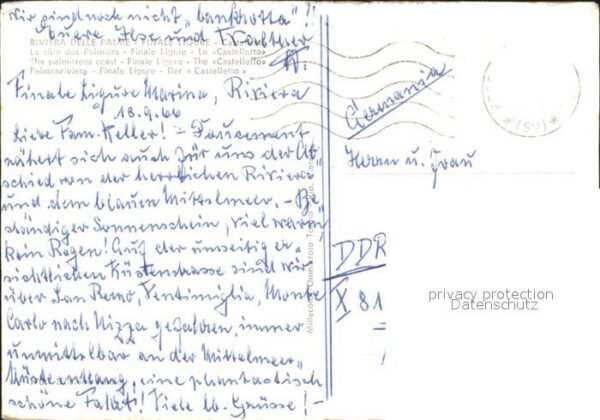 Wir sind noch nicht „bankrotta"!!
Euere Ilse und Walther
RIVIERA DELLE PALME - FINALE LIGURE -
La côte des Palmiers - Finale Ligure - Le «Castelletto»
The palm-trees coast - Finale Ligure - The «Castelletto»
Palmenriviera - Finale Ligure - Der «Castelletto»
Finale Ligure Marina, Riviera
18.9.66
Liebe Fam. Keller! - Dauernd
nähert sich auch für uns der Ab-
schied von der herrlichen Riviera
und dem blauen Mittelmeer. - Be-
ständiger Sonnenschein, viel warm
kein Regen! Auf der umseitig er-
sichtlichen Küstenstrasse sind wir
über San Remo, Ventimiglia, Monte
Carlo nach Nizza gefahren, immer
unmittelbar an der Mittelmeer-
Küste entlang, eine phantastisch
schöne Fahrt! Viele lb. Grüsse! -
Germania
Herrn u. Frau
DDR
X 81
privacy protection
Datenschutz